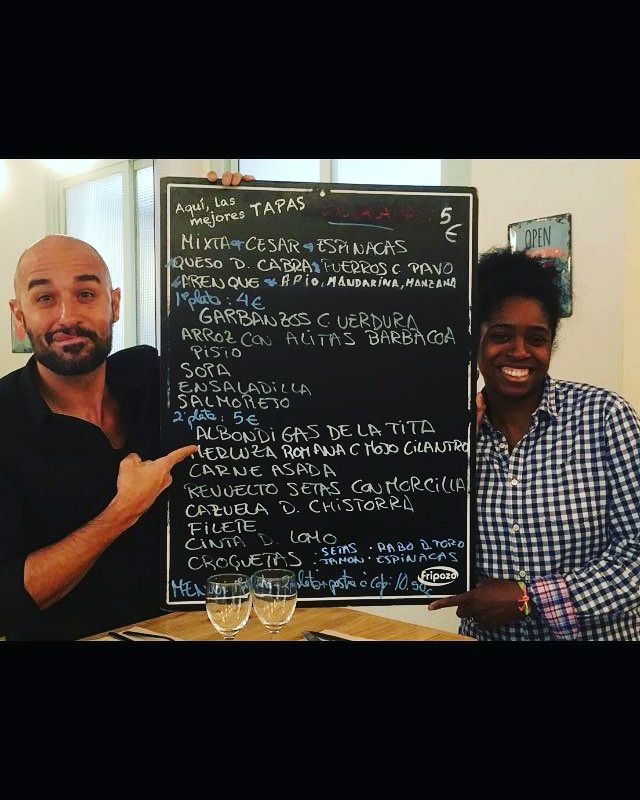 Aquí, las
mejores TAPAS
5
€
MIXTA CESAR ESPINACAS
QUESO D. CABRA PUERROS C. PAVO
ARENQUE APIO, MANDARINA, MANZANA
1º plato: 4€
GARBANZOS C. VERDURA
ARROZ CON ALITAS BARBACOA
PISTO
SOPA
ENSALADILLA
SALMOREJO
2º plato: 5€
ALBONDIGAS DE LA TITA
MERLUZA ROMANA C MOJO CILANTRO
CARNE ASADA
REVUELTO SETAS CON MORCILLA
CAZUELA D. CHISTORRA
FILETE
CINTA D. LOMO
CROQUETAS : SETAS · RABO D. TORO
JAMON · ESPINACAS
plato + postre o 10.50€
fripozo
OPEN